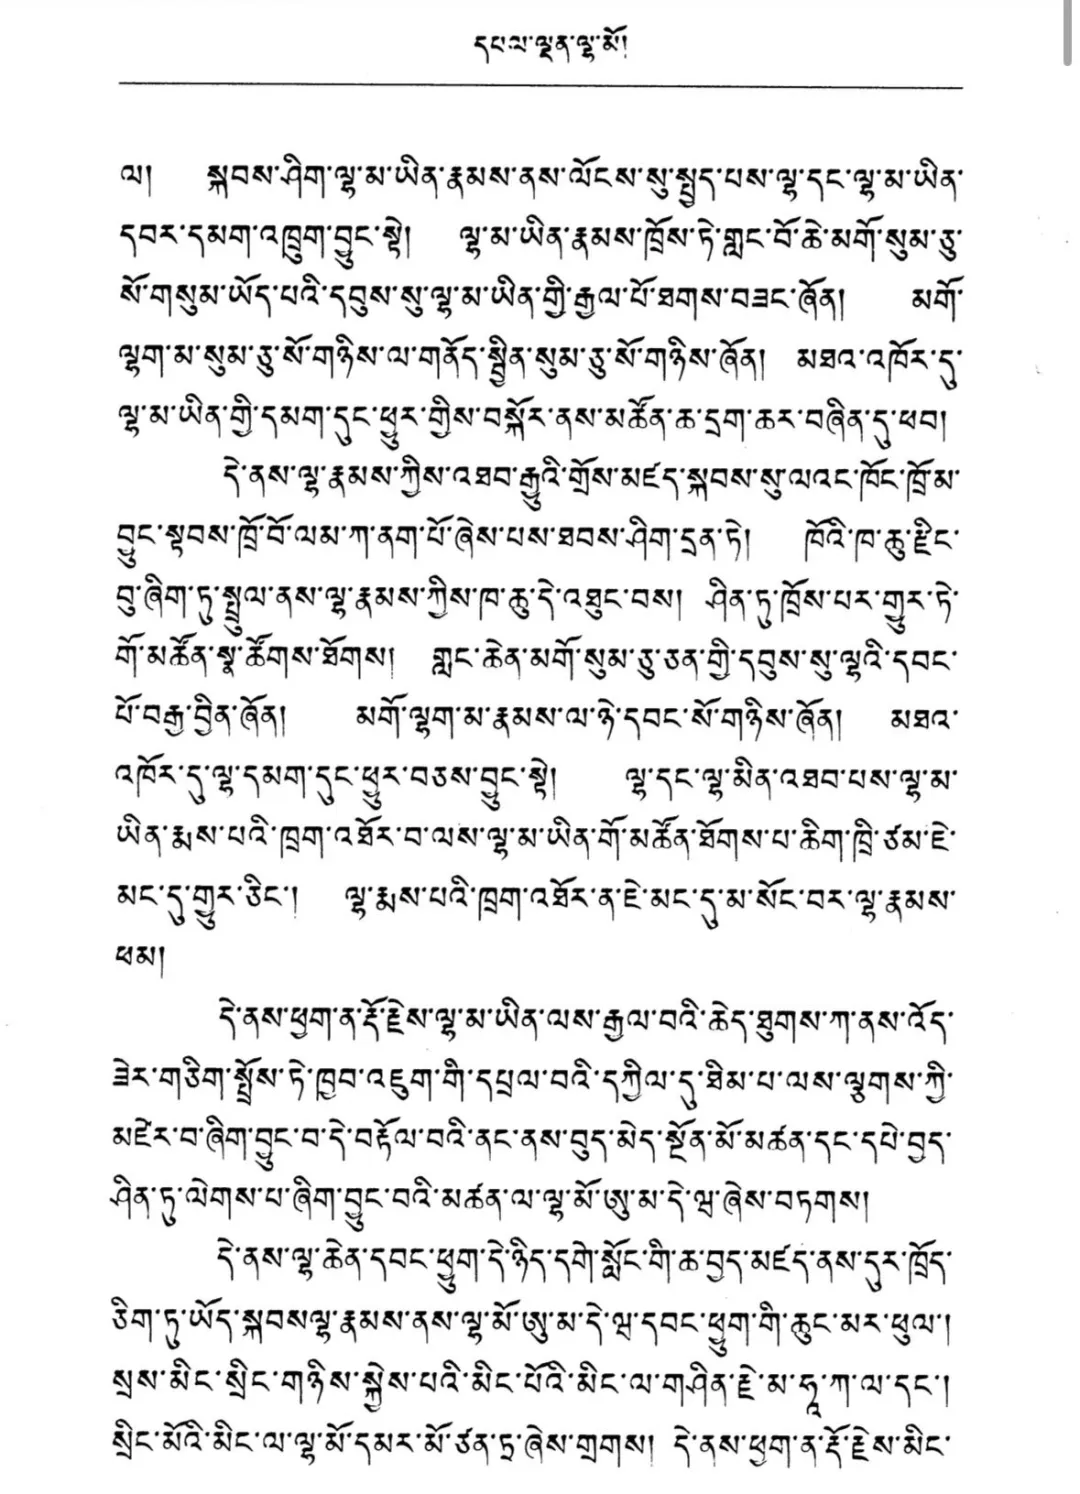 དཔལ་ལྡན་ལྷ་མོ།
ལ།  སྐབས་ཤིག་ལྷ་མ་ཡིན་རྣམས་ནས་ལོངས་སུ་སྤྱད་པས་ལྷ་དང་ལྷ་མ་ཡིན་
དབར་དམག་འཁྲུག་བྱུང་སྟེ།  ལྷ་མ་ཡིན་རྣམས་ཁྲོས་ཏེ་གླང་བོ་ཆེ་མགོ་སུམ་ཅུ་
སོ་གསུམ་ཡོད་པའི་དབུས་སུ་ལྷ་མ་ཡིན་གྱི་རྒྱལ་པོ་ཐགས་བཟང་ཞོན།  མགོ་
ལྷག་མ་སུམ་ཅུ་སོ་གཉིས་ལ་གནོད་སྦྱིན་སུམ་ཅུ་སོ་གཉིས་ཞོན།  མཐའ་འཁོར་དུ་
ལྷ་མ་ཡིན་གྱི་དམག་དུང་ཕྱུར་གྱིས་བསྐོར་ནས་མཚོན་ཆ་དྲག་ཆར་བཞིན་དུ་ཕབ།
དེ་ནས་ལྷ་རྣམས་ཀྱིས་འཐབ་རྒྱུའི་གྲོས་མཛད་སྐབས་སུ་ལའང་ཁོང་ཁྲོ་མ་
བྱུང་སྟབས་ཁྲོ་བོ་ལམ་ཀ་ནག་པོ་ཞེས་པས་ཐབས་ཤིག་དྲན་ཏེ།  ཁོའི་ཁ་ཆུ་རྫིང་
བུ་ཞིག་ཏུ་སྤྲུལ་ནས་ལྷ་རྣམས་ཀྱིས་ཁ་ཆུ་དེ་འཐུང་བས།  ཤིན་ཏུ་ཁྲོས་པར་གྱུར་ཏེ་
གོ་མཚོན་སྣ་ཚོགས་ཐོགས།  གླང་ཆེན་མགོ་སུམ་ཅུ་ཅན་གྱི་དབུས་སུ་ལྷའི་དབང་
པོ་བརྒྱ་བྱིན་ཞོན།  མགོ་ལྷག་མ་རྣམས་ལ་ཉེ་དབང་སོ་གཉིས་ཞོན།  མཐའ་
འཁོར་དུ་ལྷ་དམག་དུང་ཕྱུར་བཅས་བྱུང་སྟེ།  ལྷ་དང་ལྷ་མིན་འཐབ་པས་ལྷ་མ་
ཡིན་རྨས་པའི་ཁྲག་འཐོར་བ་ལས་ལྷ་མ་ཡིན་གོ་མཚོན་ཐོགས་པ་ཆིག་ཁྲི་ཙམ་ཇེ་
མང་དུ་གྱུར་ཅིང་།  ལྷ་རྨས་པའི་ཁྲག་འཐོར་ན་ཇེ་མང་དུ་མ་སོང་བར་ལྷ་རྣམས་
ཕམ།
དེ་ནས་ཕྱག་ན་རྡོ་རྗེས་ལྷ་མ་ཡིན་ལས་རྒྱལ་བའི་ཆེད་ཐུགས་ཀ་ནས་འོད་
ཟེར་གཅིག་སྤྲོས་ཏེ་ཁྱབ་འཇུག་གི་དཔྲལ་བའི་དཀྱིལ་དུ་ཐིམ་པ་ལས་ལྕགས་ཀྱི་
མཛེར་བ་ཞིག་བྱུང་བ་དེ་བརྟོལ་བའི་ནང་ནས་བུད་མེད་སྔོན་མོ་མཚན་དང་དཔེ་བྱད་
ཤིན་ཏུ་ལེགས་པ་ཞིག་བྱུང་བའི་མཚན་ལ་ལྷ་མོ་ཨུ་མ་དེ་ཝ་ཞེས་བཏགས།
དེ་ནས་ལྷ་ཆེན་དབང་ཕྱུག་དེ་ཉིད་དགེ་སློང་གི་ཆ་བྱད་མཛད་ནས་དུར་ཁྲོད་
ཅིག་ཏུ་ཡོད་སྐབས་ལྷ་རྣམས་ནས་ལྷ་མོ་ཨུ་མ་དེ་ཝ་དབང་ཕྱུག་གི་ཆུང་མར་ཕུལ་།
སྲས་མིང་སྲིང་གཉིས་སྐྱེས་པའི་མིང་པོའི་མིང་ལ་གཤིན་རྗེ་མ་ཧཱ་ཀ་ལ་དང་།
སྲིང་མོའི་མིང་ལ་ལྷ་མོ་དམར་མོ་ཙན་ཏྲ་ཞེས་གྲགས།  དེ་ནས་ཕྱག་ན་རྡོ་རྗེས་མིང་